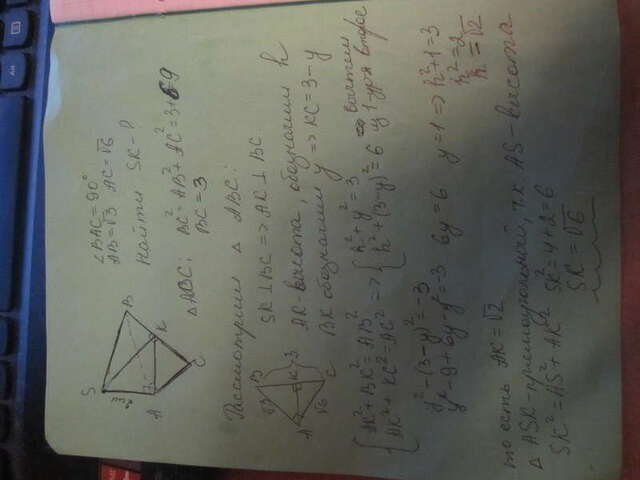 S
∠BAC = 90°
AB = √3 AC = √6
Найти SK - ?
2 см
B
A
K
C
△ABC: BC² = AB² + AC² = 3+6=9
BC = 3
Рассмотрим △ ABC:
B
√3
SK ⊥ BC => AK ⊥ BC
A
K
3
√6
C
AK - высота, обозначим h
BK обозначим y => KC = 3 - y
{ AK² + BK² = AB²
AK² + KC² = AC² => { h² + y² = 3
h² + (3-y)² = 6 => вычтем
из 1 ур-я второе
y² - (3-y)² = -3
y² - 9 + 6y - y² = -3 6y = 6 y = 1 => h² + 1 = 3
h² = 2
h = √2
то есть AK = √2
△ ASK - прямоугольный, т.к. AS - высота
SK² = AS² + AK² SK² = 4 + 2 = 6
SK = √6